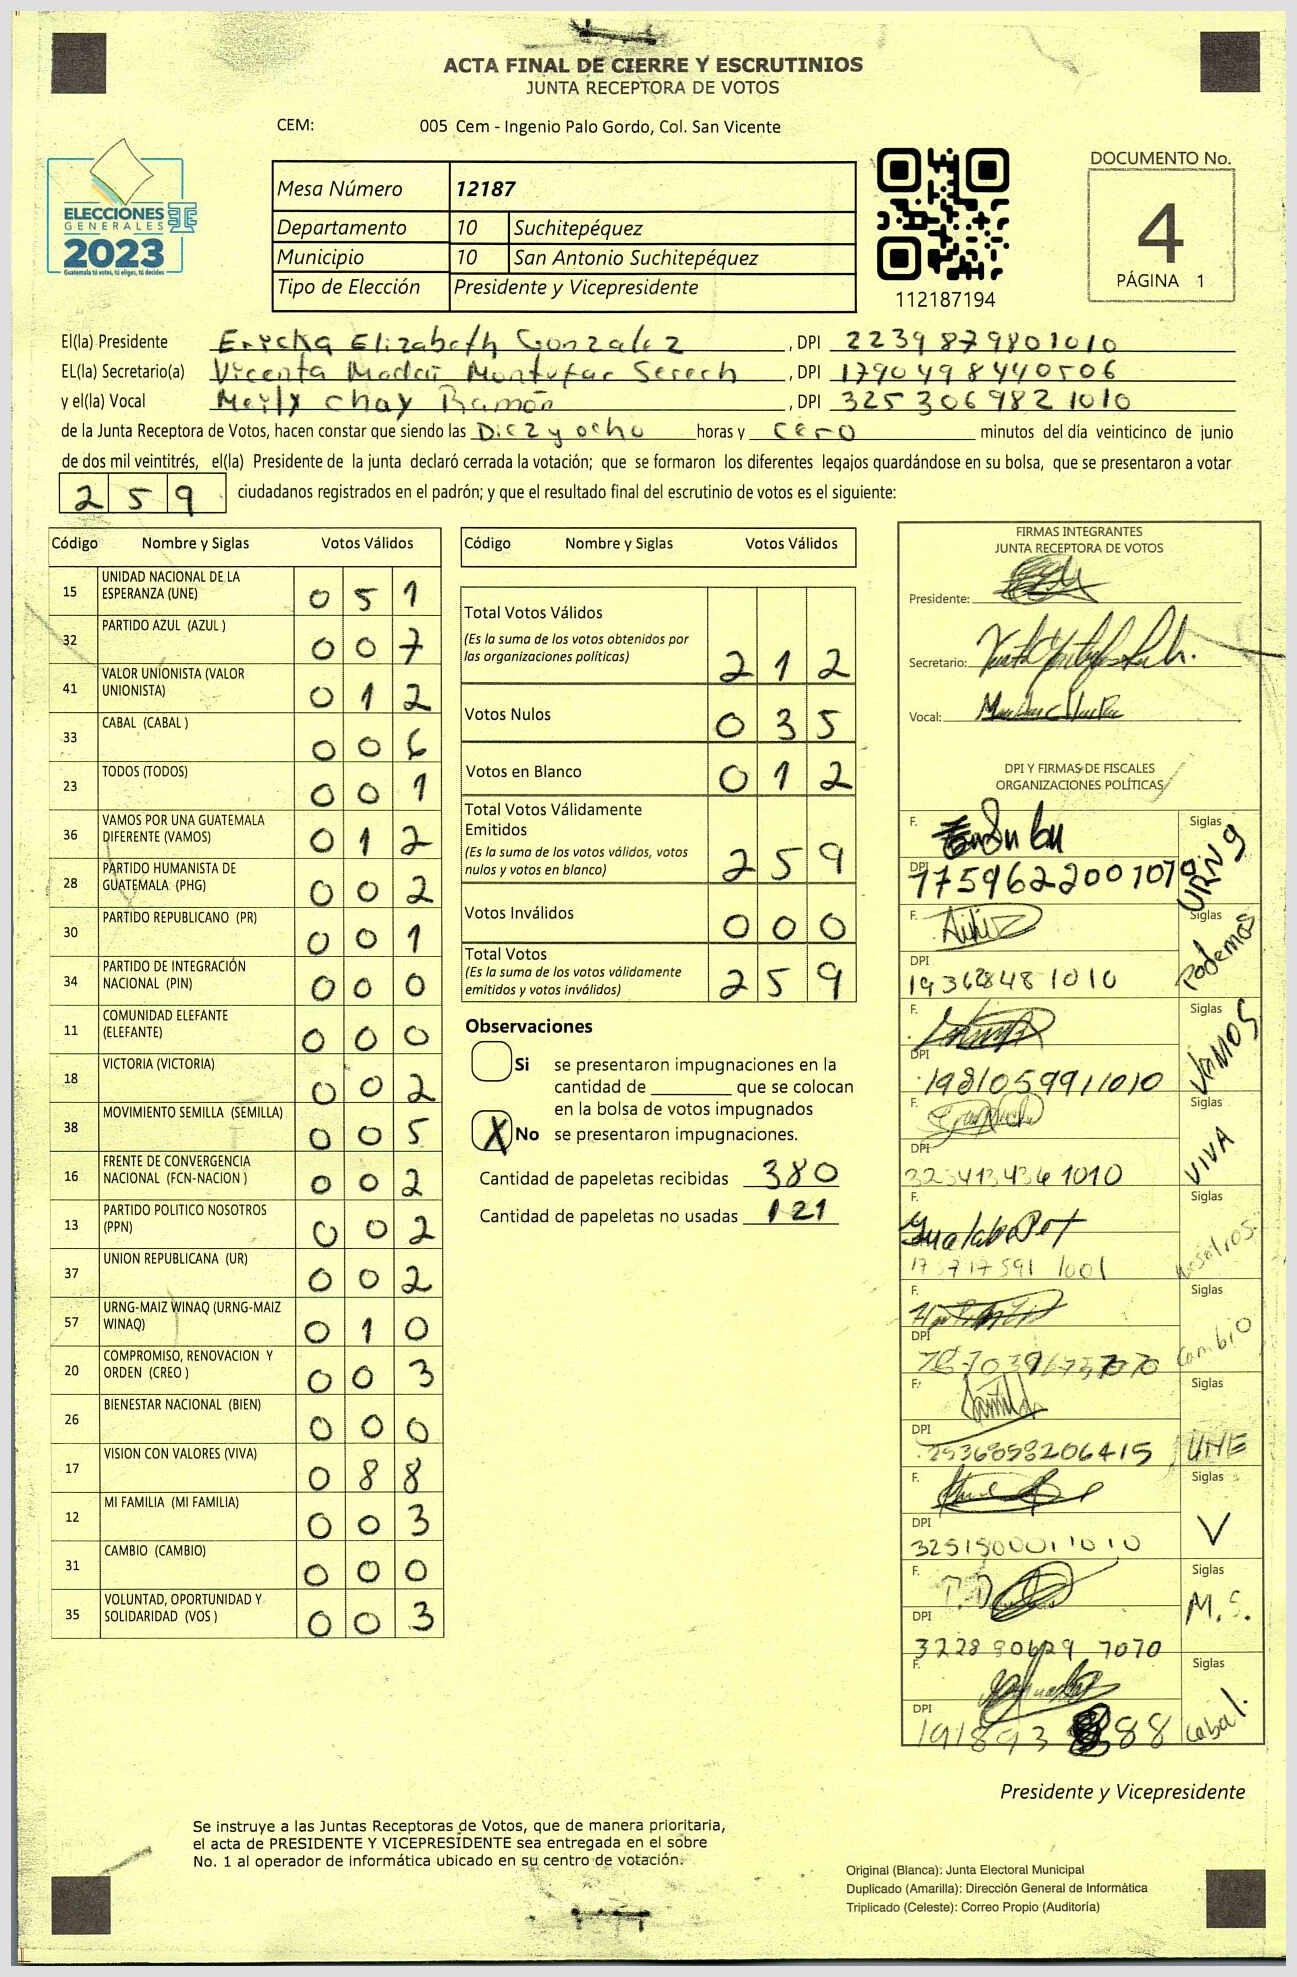 ACTA FINAL DE CIERRE Y ESCRUTINIOS
JUNTA RECEPTORA DE VOTOS
CEM: 005 Cem - Ingenio Palo Gordo, Col. San Vicente
ELECCIONES
GENERALES
2023
Guatemala tú votas, tú eliges, tú decides
Mesa Número 12187
Departamento 10 Suchitepéquez
Municipio 10 San Antonio Suchitepéquez
Tipo de Elección Presidente y Vicepresidente
112187194
DOCUMENTO No.
4
PÁGINA 1
El(la) Presidente Ericka Elizabeth Gonzalez, DPI 2239879801010
EL(la) Secretario(a) Vicenta Madaí Montufar Serech, DPI 1790498440506
y el(la) Vocal Meily Chay Ramón, DPI 3253069821010
de la Junta Receptora de Votos, hacen constar que siendo las Diez y ocho horas y cero minutos del día veinticinco de junio
de dos mil veintitrés, el(la) Presidente de la junta declaró cerrada la votación; que se formaron los diferentes legajos quardándose en su bolsa, que se presentaron a votar
259 ciudadanos registrados en el padrón; y que el resultado final del escrutinio de votos es el siguiente:
Código Nombre y Siglas Votos Válidos
15 UNIDAD NACIONAL DE LA ESPERANZA (UNE) 0 5 1
32 PARTIDO AZUL (AZUL ) 0 0 7
41 VALOR UNIONISTA (VALOR UNIONISTA) 0 1 2
33 CABAL (CABAL ) 0 0 6
23 TODOS (TODOS) 0 0 1
36 VAMOS POR UNA GUATEMALA DIFERENTE (VAMOS) 0 1 2
28 PARTIDO HUMANISTA DE GUATEMALA (PHG) 0 0 2
30 PARTIDO REPUBLICANO (PR) 0 0 1
34 PARTIDO DE INTEGRACIÓN NACIONAL (PIN) 0 0 0
11 COMUNIDAD ELEFANTE (ELEFANTE) 0 0 0
18 VICTORIA (VICTORIA) 0 0 2
38 MOVIMIENTO SEMILLA (SEMILLA) 0 0 5
16 FRENTE DE CONVERGENCIA NACIONAL (FCN-NACION ) 0 0 2
13 PARTIDO POLITICO NOSOTROS (PPN) 0 0 2
37 UNION REPUBLICANA (UR) 0 0 2
57 URNG-MAIZ WINAQ (URNG-MAIZ WINAQ) 0 1 0
20 COMPROMISO, RENOVACION Y ORDEN (CREO ) 0 0 3
26 BIENESTAR NACIONAL (BIEN) 0 0 0
17 VISION CON VALORES (VIVA) 0 8 8
12 MI FAMILIA (MI FAMILIA) 0 0 3
31 CAMBIO (CAMBIO) 0 0 0
35 VOLUNTAD, OPORTUNIDAD Y SOLIDARIDAD (VOS ) 0 0 3
Código Nombre y Siglas Votos Válidos
Total Votos Válidos
(Es la suma de los votos obtenidos por
las organizaciones políticas) 2 1 2
Votos Nulos 0 3 5
Votos en Blanco 0 1 2
Total Votos Válidamente
Emitidos
(Es la suma de los votos válidos, votos
nulos y votos en blanco) 2 5 9
Votos Inválidos 0 0 0
Total Votos
(Es la suma de los votos válidamente
emitidos y votos inválidos) 2 5 9
Observaciones
Si se presentaron impugnaciones en la
cantidad de ________ que se colocan
en la bolsa de votos impugnados
X No se presentaron impugnaciones.
Cantidad de papeletas recibidas 380
Cantidad de papeletas no usadas 121
FIRMAS INTEGRANTES
JUNTA RECEPTORA DE VOTOS
Presidente:
Secretario:
Vocal:
DPI Y FIRMAS DE FISCALES
ORGANIZACIONES POLÍTICAS
F. Siglas
DPI URNG
F. Siglas
DPI Podemos
19362848 1010
F. Siglas
DPI VAMOS
1981059911010
F. Siglas
DPI VIVA
F. Siglas
Nosotros
F. Siglas
DPI Cambio
F. Siglas
DPI UNE
2536858206415
F. Siglas
DPI V
F. Siglas
DPI M.S.
F. Siglas
DPI Cabal.
Presidente y Vicepresidente
Se instruye a las Juntas Receptoras de Votos, que de manera prioritaria,
el acta de PRESIDENTE Y VICEPRESIDENTE sea entregada en el sobre
No. 1 al operador de informática ubicado en su centro de votación.
Original (Blanca): Junta Electoral Municipal
Duplicado (Amarilla): Dirección General de Informática
Triplicado (Celeste): Correo Propio (Auditoría)